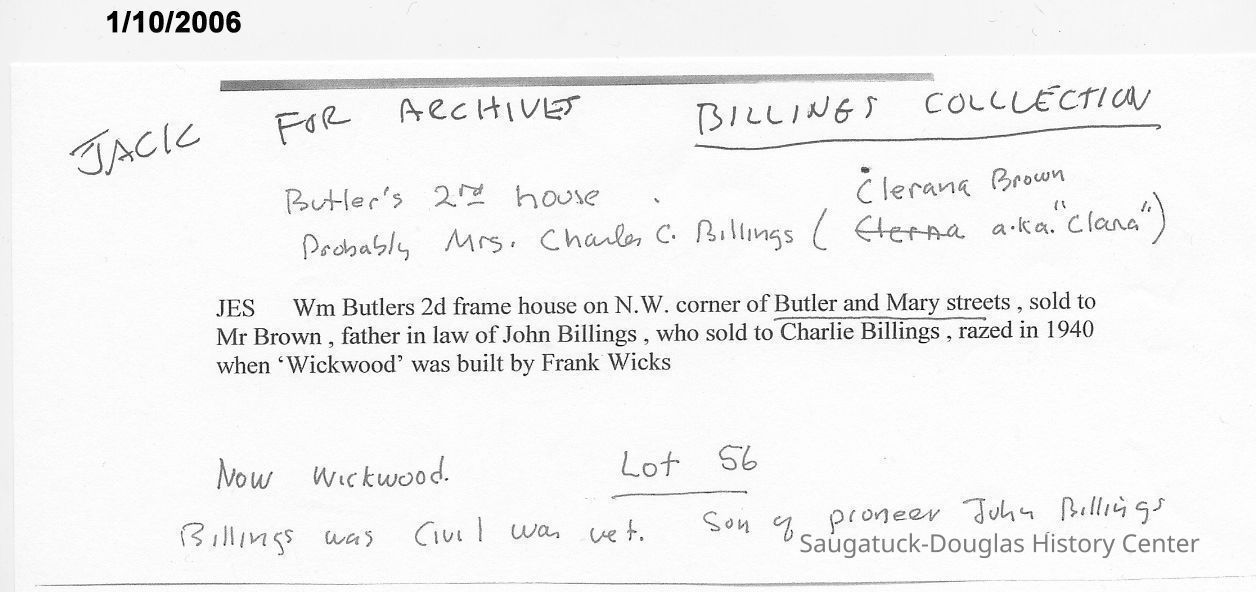 1/10/2006
JACK FOR ARCHIVES BILLINGS COLLLECTION
Butler's 2nd house . Clerana Brown
Probably Mrs. Charles C. Billings ( Clerna a.k.a. "Clara")
JES Wm Butlers 2d frame house on N.W. corner of Butler and Mary streets , sold to
Mr Brown , father in law of John Billings , who sold to Charlie Billings , razed in 1940
when ‘Wickwood’ was built by Frank Wicks
Now Wickwood. Lot 56
Billings was Civil War vet. Son of pioneer John Billings
Saugatuck-Douglas History Center